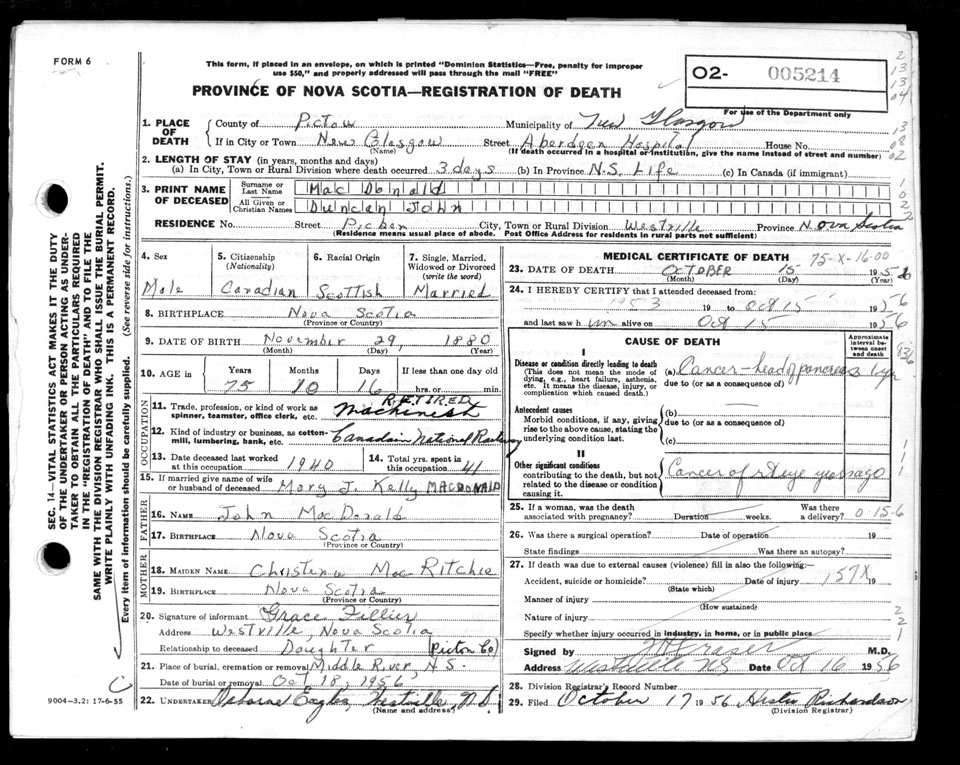 FORM 6
This form, if placed in an envelope, on which is printed "Dominion Statistics—Free, penalty for improper
use $50," and properly addressed will pass through the mail "FREE"
02- 005214
For use of the Department only
PROVINCE OF NOVA SCOTIA—REGISTRATION OF DEATH
1. PLACE OF DEATH
County of Pictou Municipality of New Glasgow
If in City or Town New Glasgow Street Aberdeen Hospital House No.
(Name) (If death occurred in a hospital or institution, give the name instead of street and number)
2. LENGTH OF STAY (in years, months and days)
(a) In City, Town or Rural Division where death occurred 3 days (b) In Province N.S. Life (c) In Canada (if immigrant)
3. PRINT NAME OF DECEASED
Surname or Last Name Mac Donald
All Given or Christian Names Duncan John
RESIDENCE No. Street City, Town or Rural Division Westville Province Nova Scotia
(Residence means usual place of abode. Post Office Address for residents in rural parts not sufficient)
4. Sex 5. Citizenship 6. Racial Origin 7. Single, Married,
(Nationality) Widowed or Divorced
(write the word)
Male Canadian Scottish Married
8. BIRTHPLACE Nova Scotia
(Province or Country)
9. DATE OF BIRTH November 29, 1880
(Month) (Day) (Year)
10. AGE in Years Months Days If less than one day
75 10 16 hrs. or min.
OCCUPATION
11. Trade, profession, or kind of work as
spinner, teamster, office clerk, etc. RETIRED Machinist
12. Kind of industry or business, as cotton-
mill, lumbering, bank, etc. Canadain National Railway
13. Date deceased last worked
at this occupation 1940
14. Total yrs. spent in
this occupation 41
15. If married give name of wife
or husband of deceased Mary J. Kelly MACDONALD
FATHER
16. NAME John MacDonald
17. BIRTHPLACE Nova Scotia
(Province or Country)
MOTHER
18. MAIDEN NAME Mac Ritchie
19. BIRTHPLACE Nova Scotia
(Province or Country)
20. Signature of informant Grace
Address Westville, Nova Scotia
Relationship to deceased Daughter (Picton Co)
21. Place of burial, cremation or removal Middle River N.S.
Date of burial or removal Oct 18, 1956
22. UNDERTAKER Westville, N.S
(Name and address)
9004—3.2: 17-6-55
MEDICAL CERTIFICATE OF DEATH
75-X-16-00
23. DATE OF DEATH OCTOBER 15 1956
(Month) (Day) (Year)
24. I HEREBY CERTIFY that I attended deceased from:
1953 19 to Oct 15 1956
and last saw him alive on Oct 15 1956
CAUSE OF DEATH
Approximate interval between onset and death
I
Disease or condition directly leading to death
(This does not mean the mode of
dying, e.g., heart failure, asthenia,
etc. It means the disease, injury, or
complication which caused death.)
(a) Cancer - head of pancreas 1 yr
due to (or as a consequence of)
Antecedent causes
Morbid conditions, if any, giving
rise to the above cause, stating the
underlying condition last.
(b)
due to (or as a consequence of)
(c)
II
Other significant conditions
contributing to the death, but not
related to the disease or condition
causing it.
Cancer of rt eye years ago
25. If a woman, was the death
associated with pregnancy? Duration weeks. Was there a delivery? 0-15-6
26. Was there a surgical operation? Date of operation 19
State findings Was there an autopsy?
27. If death was due to external causes (violence) fill in also the following:—
Accident, suicide or homicide? Date of injury 157X 19
(State which)
Manner of injury
(How sustained)
Nature of injury
Specify whether injury occurred in industry, in home, or in public place
Signed by Fraser M.D.
Address Westville NS Date Oct 16 1956
28. Division Registrar's Record Number
29. Filed October 17 1956 Richardson
(Division Registrar)
SEC. 14—VITAL STATISTICS ACT MAKES IT THE DUTY
OF THE UNDERTAKER OR PERSON ACTING AS UNDER-
TAKER TO OBTAIN ALL THE PARTICULARS REQUIRED
IN THE "REGISTRATION OF DEATH" AND TO FILE THE
SAME WITH THE DIVISION REGISTRAR WHO SHALL ISSUE THE BURIAL PERMIT.
WRITE PLAINLY WITH UNFADING INK. THIS IS A PERMANENT RECORD.
Every item of information should be carefully supplied. (See reverse side for instructions.)